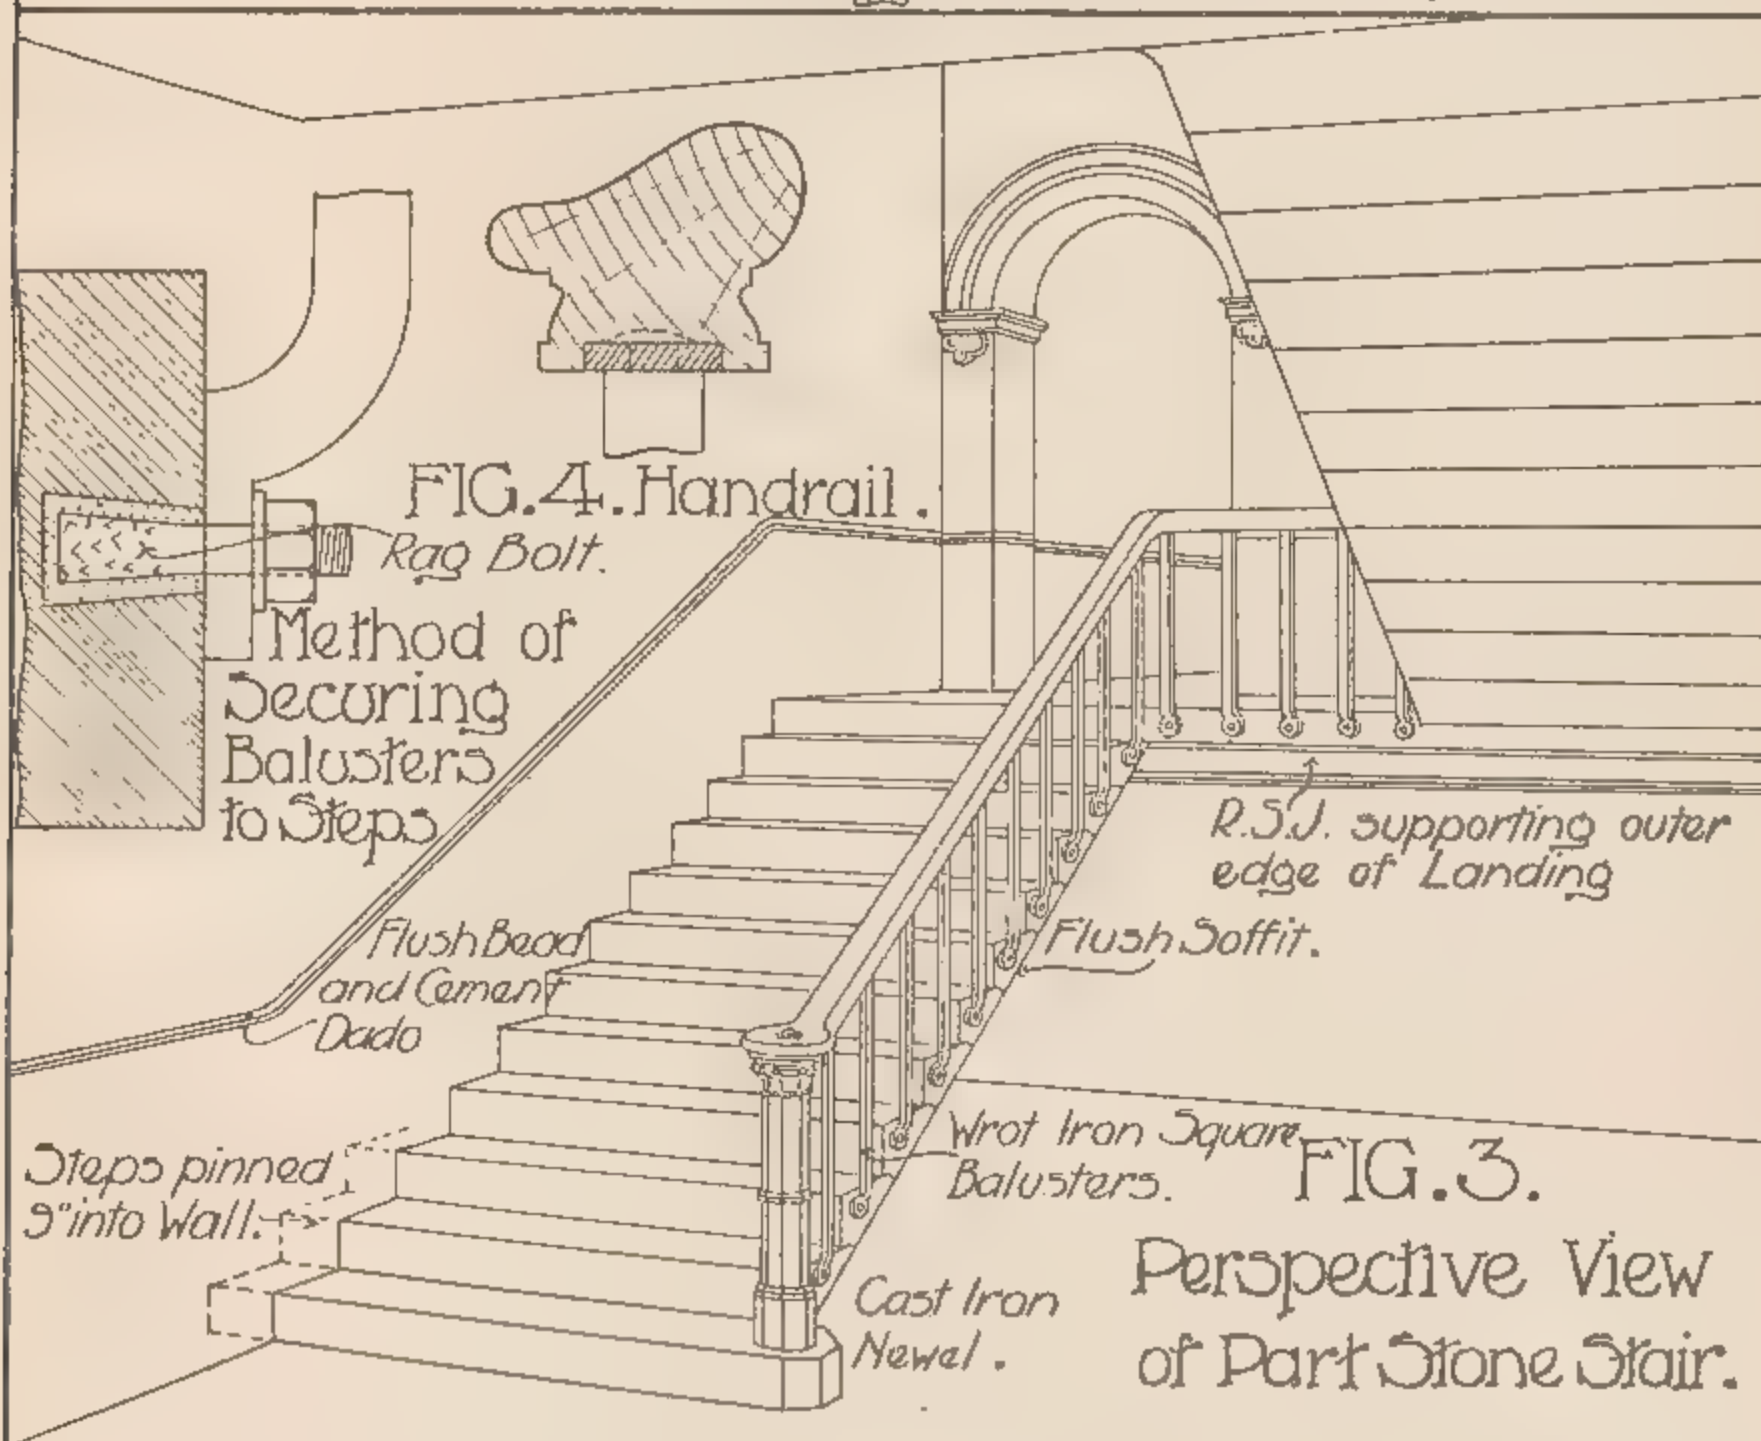 FIG.4. Handrail.
Rag Bolt.
Method of
Securing
Balusters
to Steps
R.S.J. supporting outer
edge of Landing
Flush Bead
and Cement
Dado
Flush Soffit.
Steps pinned
9" into Wall.
Wrot Iron Square
Balusters.
Cast Iron
Newel.
FIG.3.
Perspective View
of Part Stone Stair.